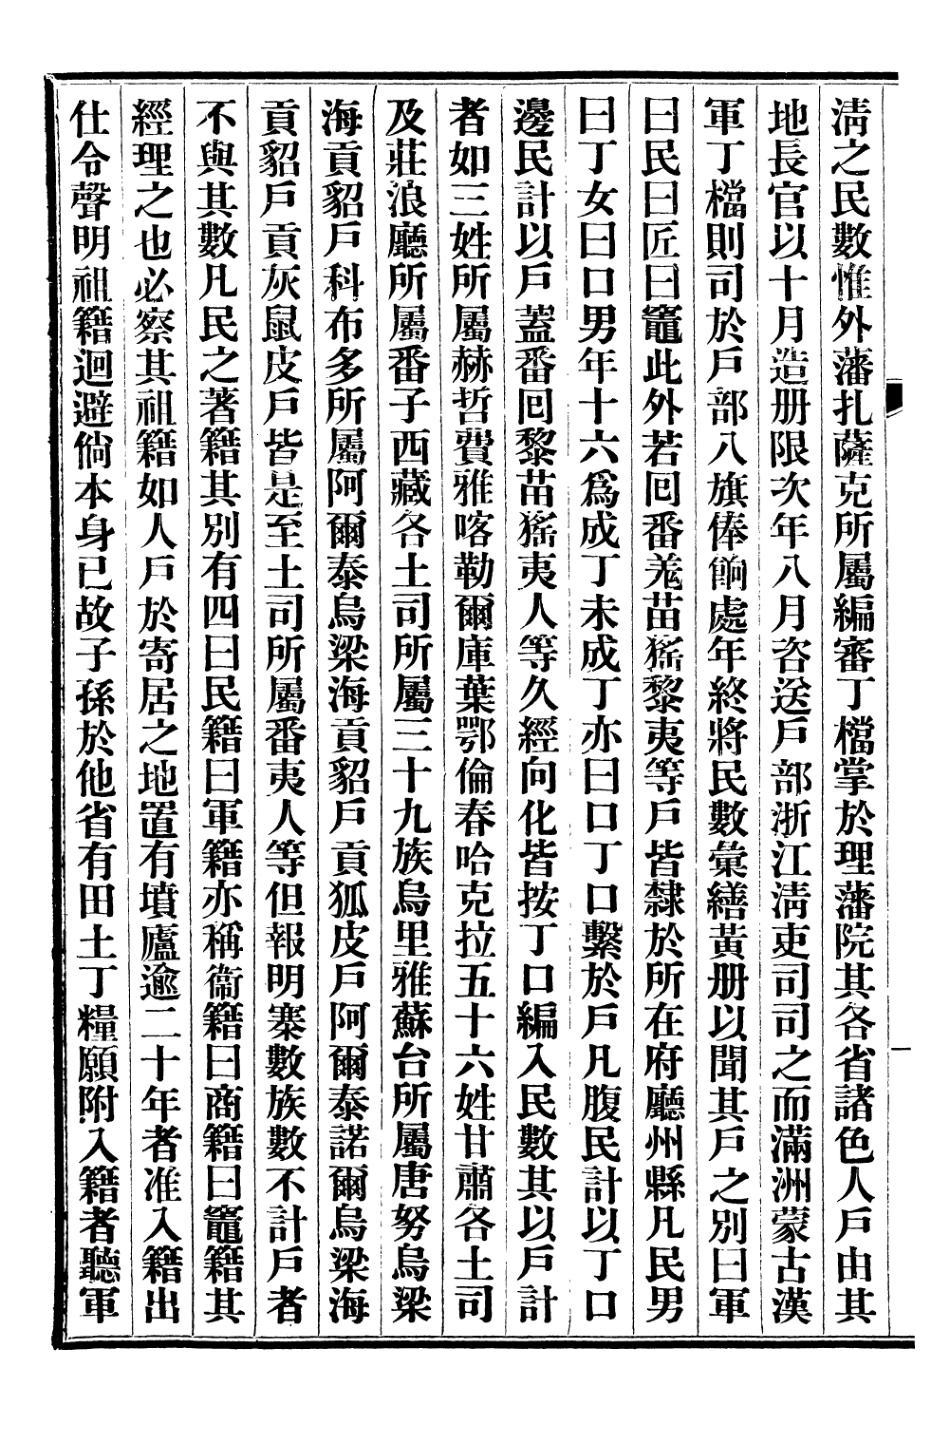 淸之民數惟外藩扎薩克所屬編審丁檔掌於理藩院其各省諸色人戶由其
地長官以十月造册限次年八月咨送戶部浙江淸吏司司之而滿洲蒙古漢
軍丁檔則司於戶部八旗俸餉處年終將民數彙繕黃册以聞其戶之別曰軍
曰民曰匠曰竈此外若回番羌苗猺黎夷等戶皆隸於所在府廳州縣凡民男
曰丁女曰口男年十六爲成丁未成丁亦曰口丁口繫於戶凡腹民計以丁口
邊民計以戶蓋番回黎苗猺夷人等久經向化皆按丁口編入民數其以戶計
者如三姓所屬赫哲費雅喀勒爾庫葉鄂倫春哈克拉五十六姓甘肅各土司
及莊浪廳所屬番子西藏各土司所屬三十九族烏里雅蘇台所屬唐努烏梁
海貢貂戶科布多所屬阿爾泰烏梁海貢貂戶貢狐皮戶阿爾泰諾爾烏梁海
貢貂戶貢灰鼠皮戶皆是至土司所屬番夷人等但報明寨數族數不計戶者
不與其數凡民之著籍其別有四曰民籍曰軍籍亦稱衞籍曰商籍曰竈籍其
經理之也必察其祖籍如人戶於寄居之地置有墳廬逾二十年者准入籍出
仕令聲明祖籍迴避倘本身已故子孫於他省有田土丁糧願附入籍者聽軍
一